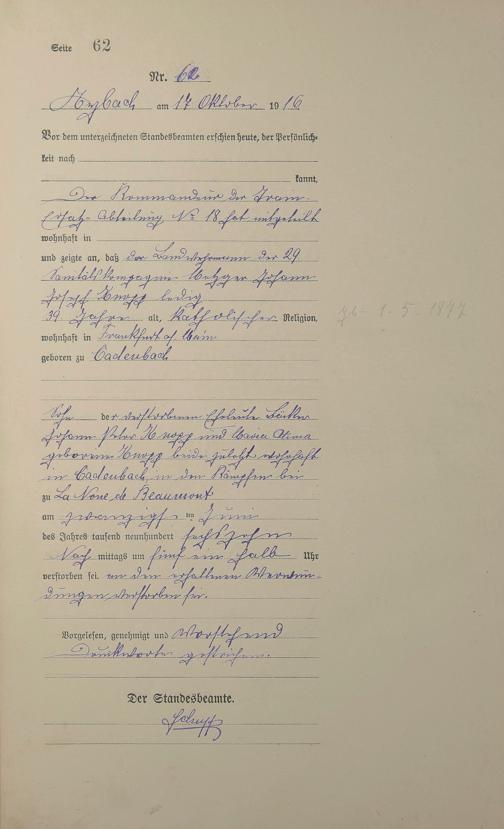 Seite 62
Nr. 62
Arzbach am 17 Oktober 1916
Vor dem unterzeichneten Standesbeamten erschien heute, der Persönlich-
keit nach
kannt,
Der Kommandeur der Train-
Ersatz-Abteilung No 18 hat mitgeteilt
wohnhaft in
und zeigte an, daß der Landwehrmann der 29
Sanitätskompagnie Metzger Johann
Joseph Knopp ledig
39 Jahre alt, katholischer Religion,
wohnhaft in Frankfurt a/ Main
geboren zu Cadenbach
Sohn der verstorbenen Eheleute Bäcker
Johann Peter Knopp und Maria Anna
geborene Knopp beide zuletzt wohnhaft
in Cadenbach, in den Kämpfen bei
zu La Noue de Beaumont
am zwanzigsten Juni
des Jahres tausend neunhundert sechszehn
Nach mittags um fünf ein halb Uhr
verstorben sei an den erhaltenen Verwun-
dungen verstorben sei.
Vorgelesen, genehmigt und Vorstehend
Druckworte gestrichen.
Der Standesbeamte.
1-5-1877